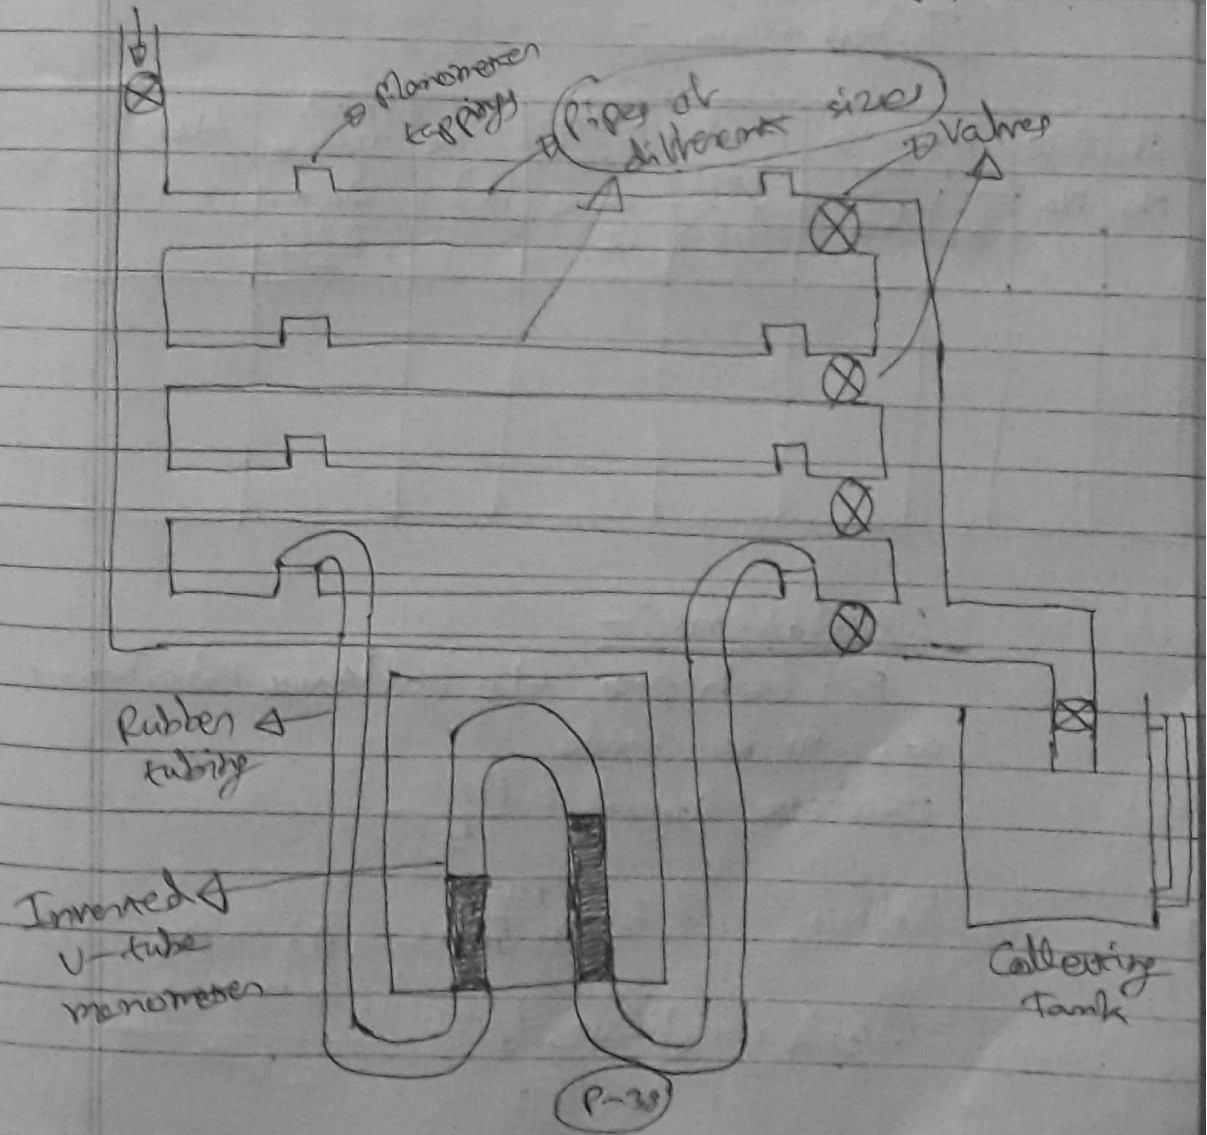 Manometer
tappings
Pipes of
different sizes
Valves
Rubber
tubing
Inverted
U-tube
manometer
Collecting
Tank